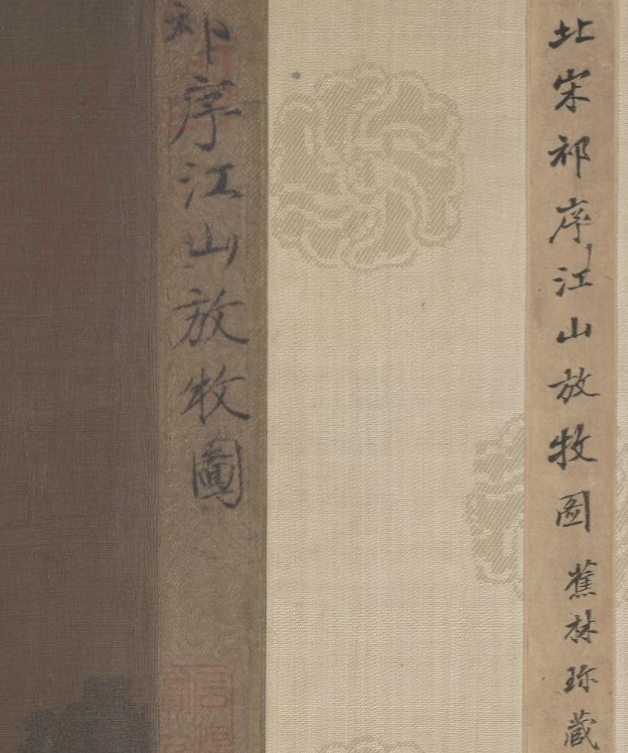 北宋祁序江山放牧圖蕉林珎藏
祁序江山放牧圖